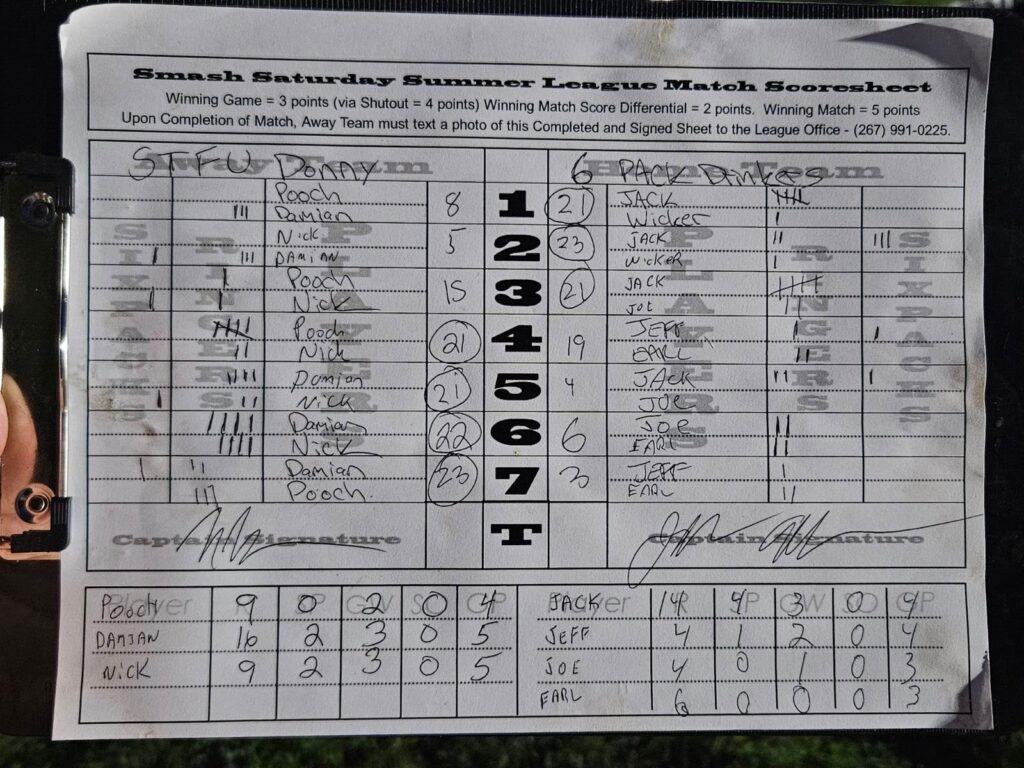 Smash Saturday Summer League Match Scoresheet
Winning Game = 3 points (via Shutout = 4 points) Winning Match Score Differential = 2 points. Winning Match = 5 points
Upon Completion of Match, Away Team must text a photo of this Completed and Signed Sheet to the League Office - (267) 991-0225.
Away Team STFU Donny Home Team 6 PACK Dinkes
SIXPACKS RINGERS PLAYERS PLAYERS RINGERS SIXPACKS
Pooch 8 1 21 JACK
Damian Wicker
Nick 5 2 23 JACK
DAMIAN WICKER
Pooch 15 3 21 JACK
Nick JOE
Pooch 21 4 19 JEFF
Nick EARL
Damian 21 5 4 JACK
NICK JOE
Damian 22 6 6 JOE
Nick EARL
Damian 23 7 3 JEFF
Pooch EARL
Captain Signature T Captain Signature
Player R SP GW SO GP Player R SP GW SO GP
Pooch 9 0 2 0 4 JACK 14 4 3 0 4
DAMIAN 16 2 3 0 5 JEFF 4 1 2 0 4
NICK 9 2 3 0 5 JOE 4 0 1 0 3
EARL 6 0 0 0 3